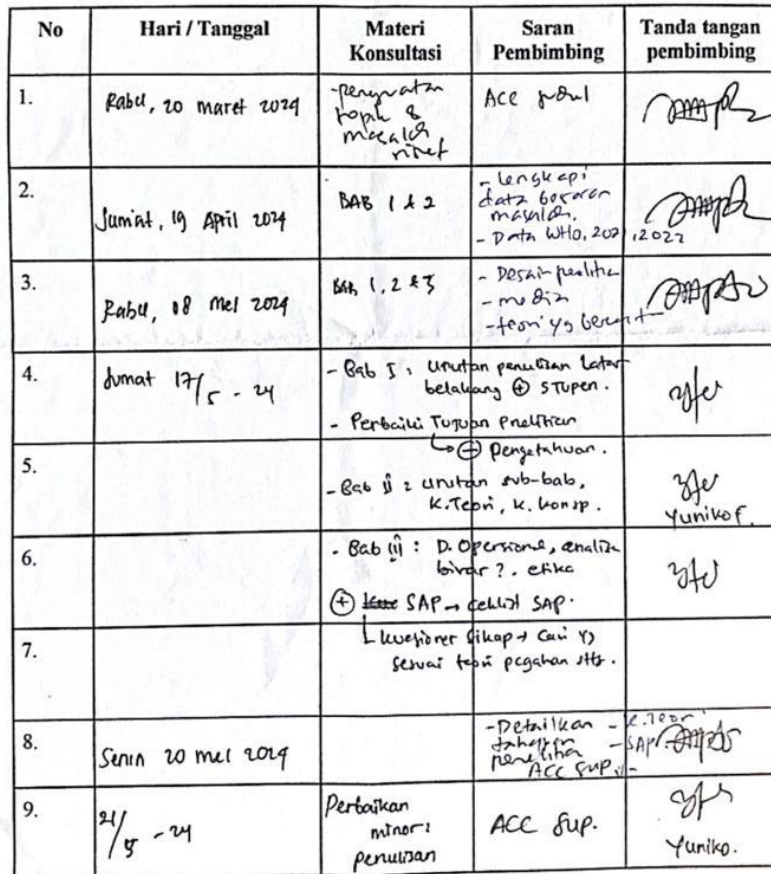 No Hari / Tanggal Materi Konsultasi Saran Pembimbing Tanda tangan pembimbing
1. Rabu, 20 maret 2024
-penguatan
topik &
masalah
riset
ACC judul
2. Jumat, 19 April 2024
BAB 1 & 2
- Lengkapi
data besaran
masalah.
- Data WHO, 2021, 2022
3. Rabu, 08 mei 2024
Bab 1, 2 & 3
- Desain penelitian
- media
- teori yg
4. Jumat 17/5 - 24
- Bab I : urutan penulisan latar
belakang + STUPEN.
- Perbaiki Tujuan Penelitian
↳ - Pengetahuan.
5.
- Bab ii : urutan sub-bab,
K. Teori, K. konsp.
Yuniko f.
6.
- Bab iii : D. Opersional, analisa
bivar ?. etika
+ SAP → ceklist SAP.
7.
↳ kuesioner Sikap → Cari yg
sesuai teori
8. Senin 20 mei 2024
- Detailkan
tahapan
penelitian
- K. Teori
- SAP
ACC Sup
9. 21/5 - 24
Perbaikan
minor :
penulisan
ACC Sup.
Yuniko.